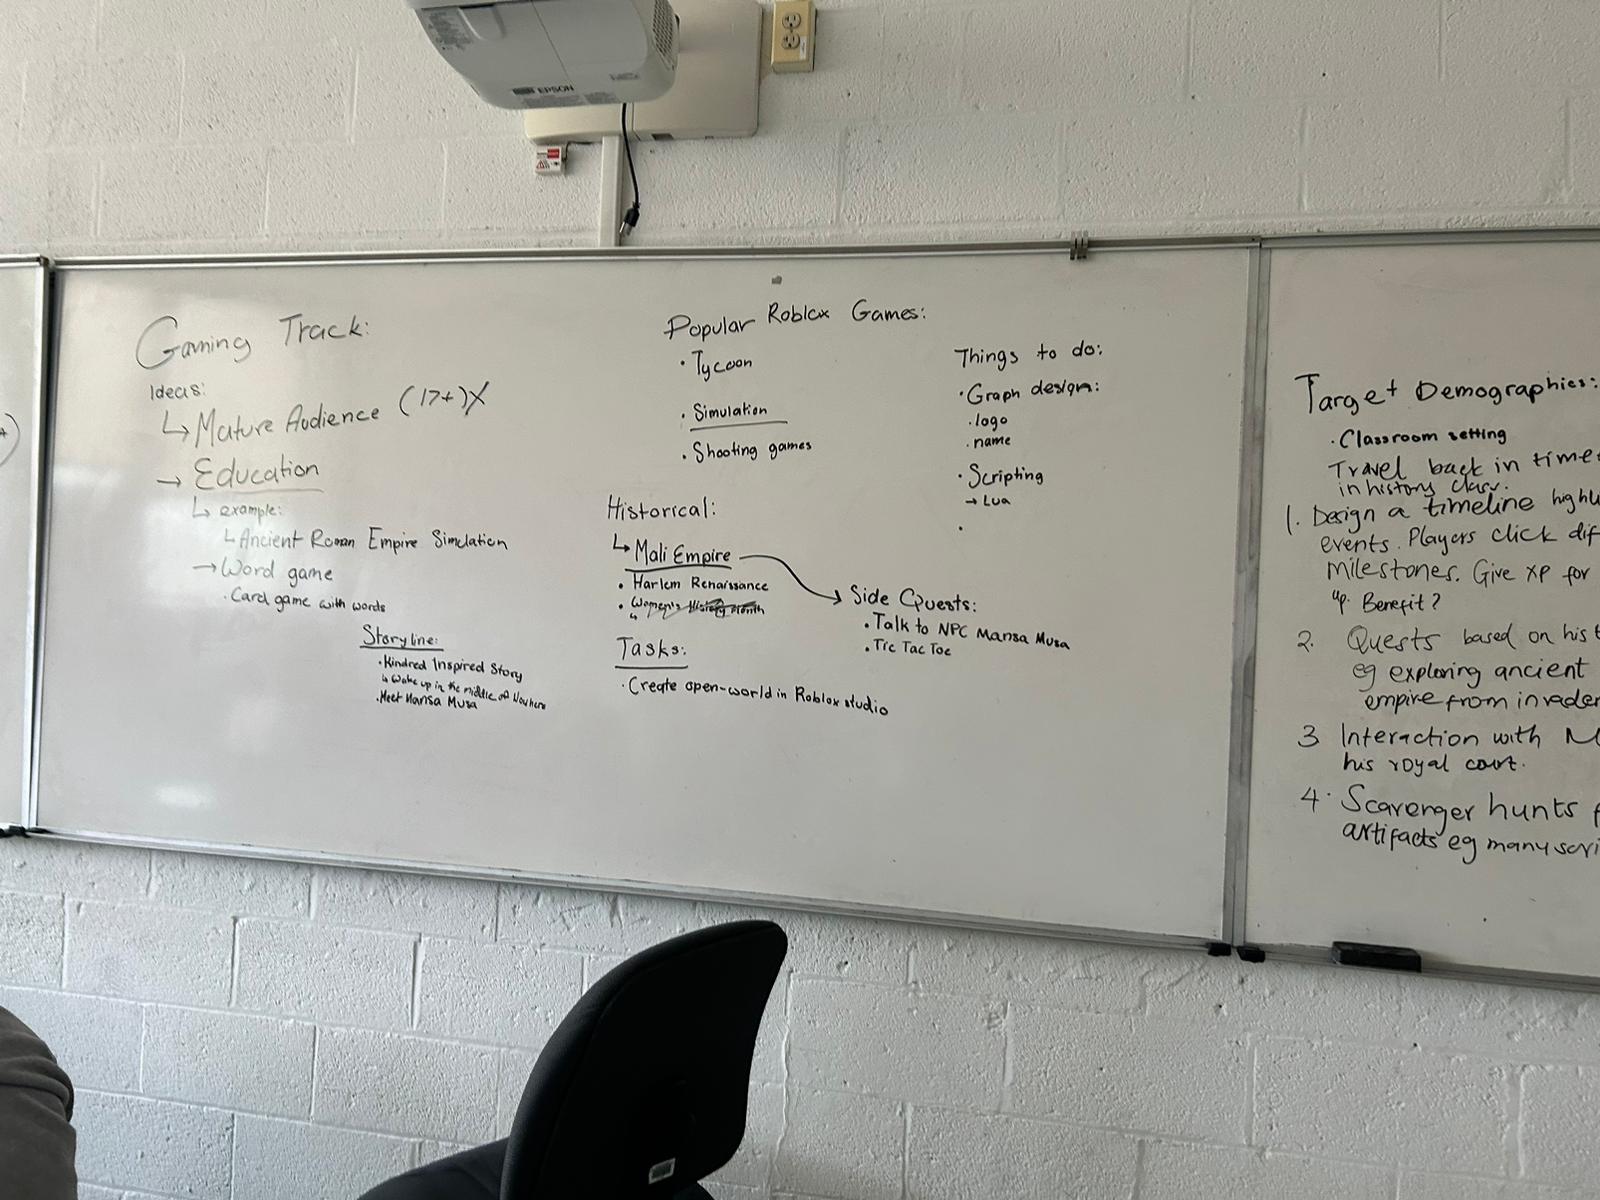 EPSON
Gaming Track:
Ideas:
↳ Mature Audience (17+) X
→ Education
↳ example:
↳ Ancient Roman Empire Simulation
→ Word game
• Card game with words
Storyline:
• Kindred Inspired Story
↳ Wake up in the middle of Nowhere
• Meet Mansa Musa
Popular Roblox Games:
• Tycoon
• Simulation
• Shooting games
Things to do:
• Graph design:
• logo
• name
• Scripting
→ Lua
•
Historical:
↳ Mali Empire
• Harlem Renaissance
• Women's History Month
Side Quests:
• Talk to NPC Mansa Musa
• Tic Tac Toe
Tasks:
• Create open-world in Roblox studio
Target Demographics:
• Classroom setting
Travel back in time
in history class.
1. Design a timeline
events. Players click
milestones. Give XP for
up. Benefit?
2. Quests based on
eg exploring ancient
empire from
3 Interaction with
his royal court.
4. Scavenger hunts
artifacts eg